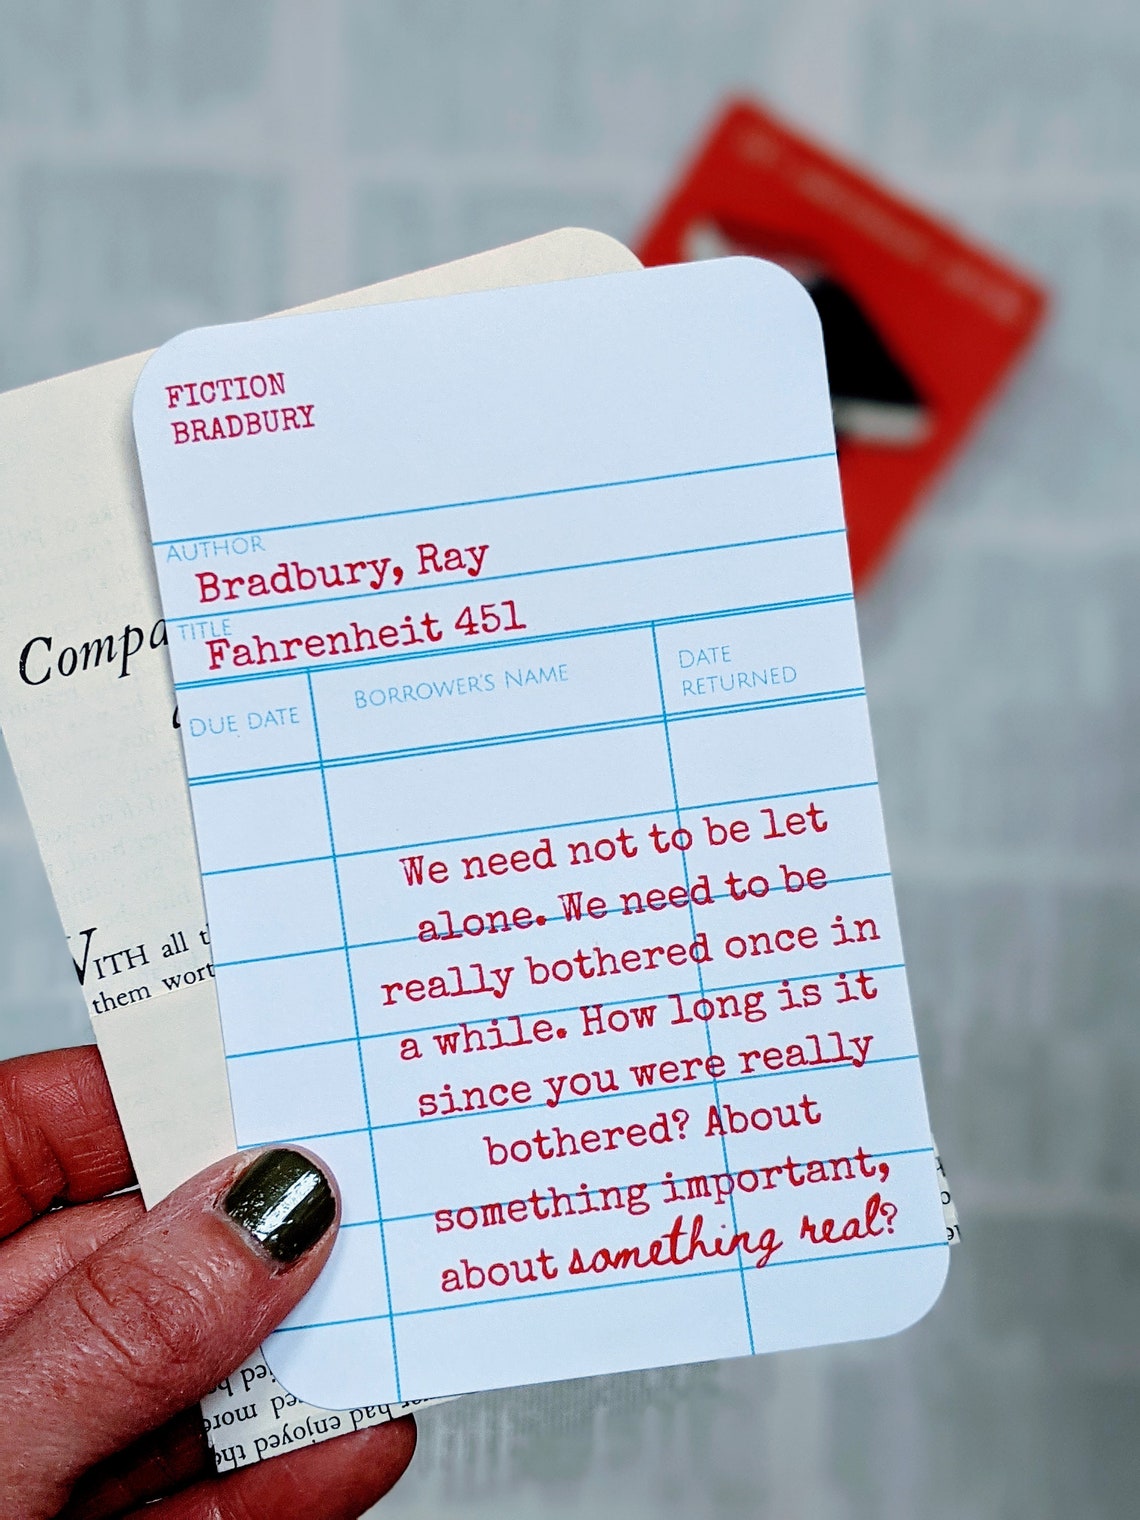 FICTION
BRADBURY
AUTHOR
Bradbury, Ray
TITLE
Fahrenheit 451
DUE DATE
BORROWER'S NAME
DATE
RETURNED
We need not to be let
alone. We need to be
really bothered once in
a while. How long is it
since you were really
bothered? About
something important,
about something real?
Compa
WITH all t
them wort
more
enjoyed the